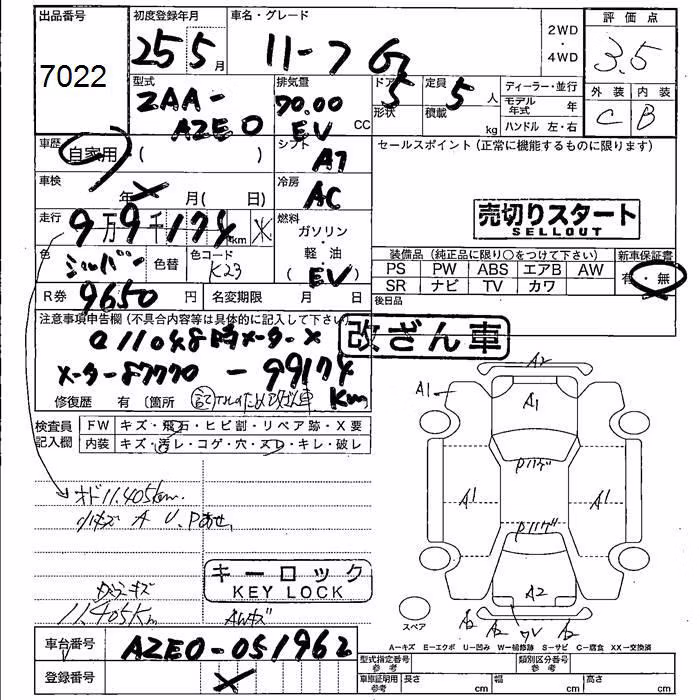 出品番号
7022
初度登録年月
25 5月
車名・グレード
リーフ G
2WD
・
4WD
評価点
3.5
外装 内装
C B
型式
ZAA-
AZE0
排気量
70.00
EV
CC
ドア
5
形状
定員
5人
積載
kg
ディーラー・並行
モデル年式 年
ハンドル 左・右
車歴
自家用 ( )
シフト
AT
セールスポイント (正常に機能するものに限ります)
車検
年 X 月( 日)
冷房
AC
売切りスタート
SELLOUT
走行
9万9千174km
燃料
ガソリン
・
軽・油
(EV)
色
シルバー
色替
色コード
K23
装備品 (純正品に限り○をつけて下さい)
PS PW ABS エアB AW
SR ナビ TV カワ
新車保証書
有・無
R券 9650円
名変期限 月 日
後日品
注意事項申告欄 (不具合内容等は具体的に記入して下さい)
改ざん車
@11048時メーターX
メーター87770 - 99174
Km
修復歴 有 〔箇所
検査員
記入欄
FW キズ・飛石・ヒビ割・リペア跡・X要
内装 キズ・汚レ・コゲ・穴・スレ・キレ・破レ
オド11.405km.
小キズ A U.Pあせ.
11.405Km
AWキズ
キーロック
KEY LOCK
A2
A1
A1
Pハゲ
A1
A1
Pハゲ
A2
スペア
A2
A2
A2
A-キズ E-エクボ U-凹み W-補修跡 S-サビ C-腐食 XX-交換済
車台番号
AZE0-051962
登録番号
X
型式指定番号
参考
類別区分番号
参考
車庫証明用
参考
長さ cm
幅 cm
高さ cm